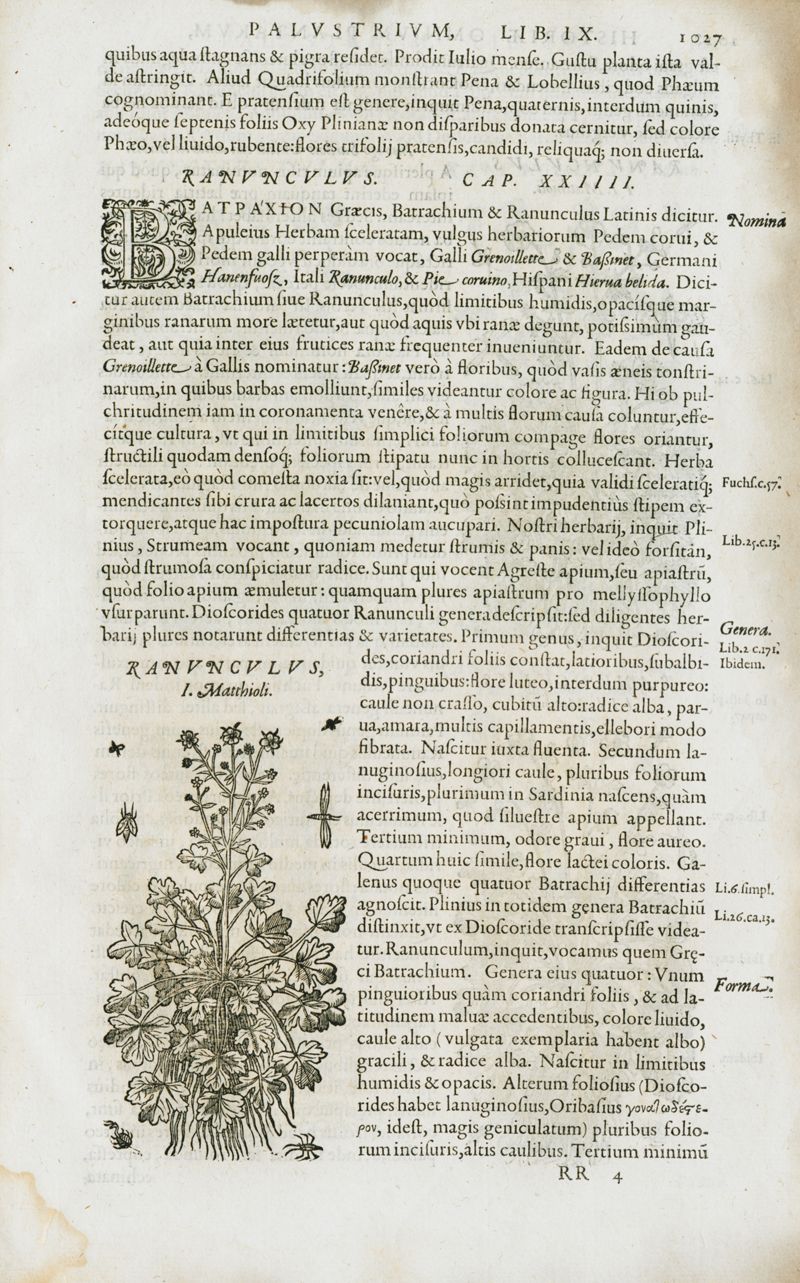 PALVSTRIVM, LIB. IX. 1027
quibus aqua ſtagnans & pigra reſidet. Prodit Iulio menſe. Guſtu planta iſta val-
de aſtringit. Aliud Quadrifolium monſtrant Pena & Lobellius, quod Phæum
cognominant. E pratenſium eſt genere, inquit Pena, quaternis, interdum quinis,
adeóque ſeptenis foliis Oxy Plinianæ non diſparibus donata cernitur, ſed colore
Phæo, vel liuido, rubente: flores trifolij pratenſis, candidi, reliquaq́; non diuerſa.
RANVNCVLVS. CAP. XXIIII.
BATPAXION Græcis, Batrachium & Ranunculus Latinis dicitur. Nomina
Apuleius Herbam ſceleratam, vulgus herbariorum Pedem corui, &
Pedem galli perperàm vocat, Galli Grenoillette & Baßinet, Germani
Hanenfuoſz, Itali Ranunculo, & Pie coruino, Hiſpani Hierua belida. Dici-
tur autem Batrachium ſiue Ranunculus, quòd limitibus humidis, opacíſque mar-
ginibus ranarum more lætetur, aut quòd aquis vbi ranæ degunt, potiſsimùm gau-
deat, aut quia inter eius frutices ranæ frequenter inueniuntur. Eadem de cauſa
Grenoillette à Gallis nominatur: Baßinet verò à floribus, quòd vaſis æneis tonſtri-
narum, in quibus barbas emolliunt, ſimiles videantur colore ac figura. Hi ob pul-
chritudinem iam in coronamenta venêre, & à multis florum cauſa coluntur, effe-
cítque cultura, vt qui in limitibus ſimplici foliorum compage flores oriantur,
ſtructili quodam denſoq́; foliorum ſtipatu nunc in hortis colluceſcant. Herba
ſcelerata, eò quòd comeſta noxia ſit: vel, quòd magis arridet, quia validi ſceleratiq́; Fuchſ.c.57.
mendicantes ſibi crura ac lacertos dilaniant, quò poſsint impudentiùs ſtipem ex-
torquere, atque hac impoſtura pecuniolam aucupari. Noſtri herbarij, inquit Pli-
nius, Strumeam vocant, quoniam medetur ſtrumis & panis: vel ideò forſitàn, Lib.25.c.13.
quòd ſtrumoſa conſpiciatur radice. Sunt qui vocent Agreſte apium, ſeu apiaſtrũ,
quòd folio apium æmuletur: quamquam plures apiaſtrum pro melliſſophyllo
vſurparunt. Dioſcorides quatuor Ranunculi genera deſcripſit: ſed diligentes her-
barij plures notarunt differentias & varietates. Primum genus, inquit Dioſcori- Genera.
Lib.2 c.171.
RANVNCVLVS,
I. Matthioli.
des, coriandri foliis conſtat, latioribus, ſubalbi- Ibidem.
dis, pinguibus: flore luteo, interdum purpureo:
caule non craſſo, cubitũ alto: radice alba, par-
ua, amara, multis capillamentis, ellebori modo
fibrata. Naſcitur iuxta fluenta. Secundum la-
nuginoſius, longiori caule, pluribus foliorum
inciſuris, plurimum in Sardinia naſcens, quàm
acerrimum, quod ſilueſtre apium appellant.
Tertium minimum, odore graui, flore aureo.
Quartum huic ſimile, flore lactei coloris. Ga-
lenus quoque quatuor Batrachij differentias Li.6.ſimpl.
agnoſcit. Plinius in totidem genera Batrachiũ Li.26.ca.13.
diſtinxit, vt ex Dioſcoride tranſcripſiſſe videa-
tur. Ranunculum, inquit, vocamus quem Gręci-
ci Batrachium. Genera eius quatuor: Vnum
pinguioribus quàm coriandri foliis, & ad la- Forma.
titudinem maluæ accedentibus, colore liuido,
caule alto (vulgata exemplaria habent albo)
gracili, & radice alba. Naſcitur in limitibus
humidis & opacis. Alterum folioſius (Dioſco-
rides habet lanuginoſius, Oribaſius γονατωδέστε-
ρον, ideſt, magis geniculatum) pluribus folio-
rum inciſuris, altis caulibus. Tertium minimũ
RR 4